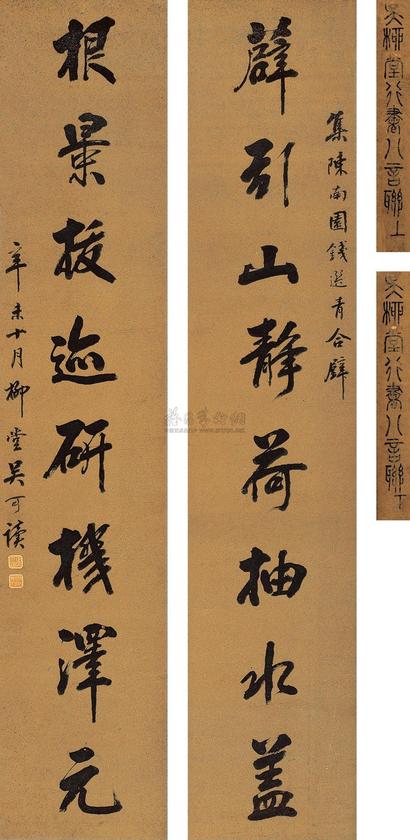 集陳南園錢選青合璧
薜引山靜荷抽水蓋
根景拔迹研機澤元
辛未十月柳堂吳可讀
吳柳堂行書八言聯上
吳柳堂行書八言聯下